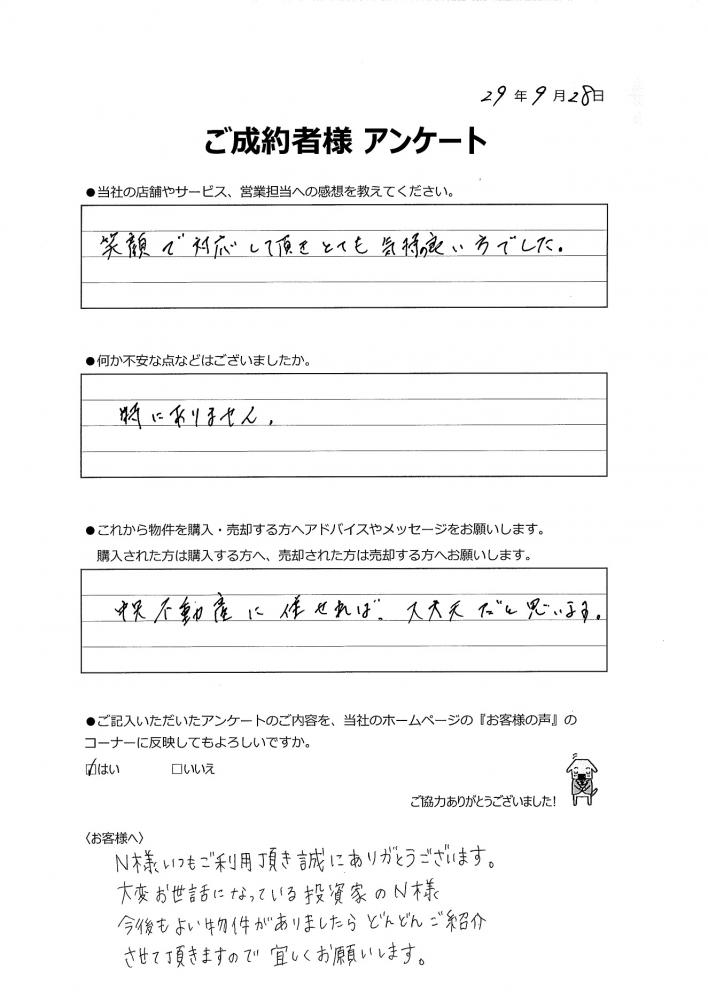 29年9月28日
ご成約者様 アンケート
●当社の店舗やサービス、営業担当への感想を教えてください。
笑顔で対応して頂きとても気持の良い方でした。
●何か不安な点などはございましたか。
特にありません。
●これから物件を購入・売却する方へアドバイスやメッセージをお願いします。
購入された方は購入する方へ、売却された方は売却する方へお願いします。
中央不動産に任せれば、大丈夫だと思います。
●ご記入いただいたアンケートのご内容を、当社のホームページの『お客様の声』の
コーナーに反映してもよろしいですか。
☑はい □いいえ
ご協力ありがとうございました!
〈お客様へ〉
N様いつもご利用頂き誠にありがとうございます。
大変お世話になっている投資家のN様
今後もよい物件がありましたらどんどんご紹介
させて頂きますので宜しくお願いします。